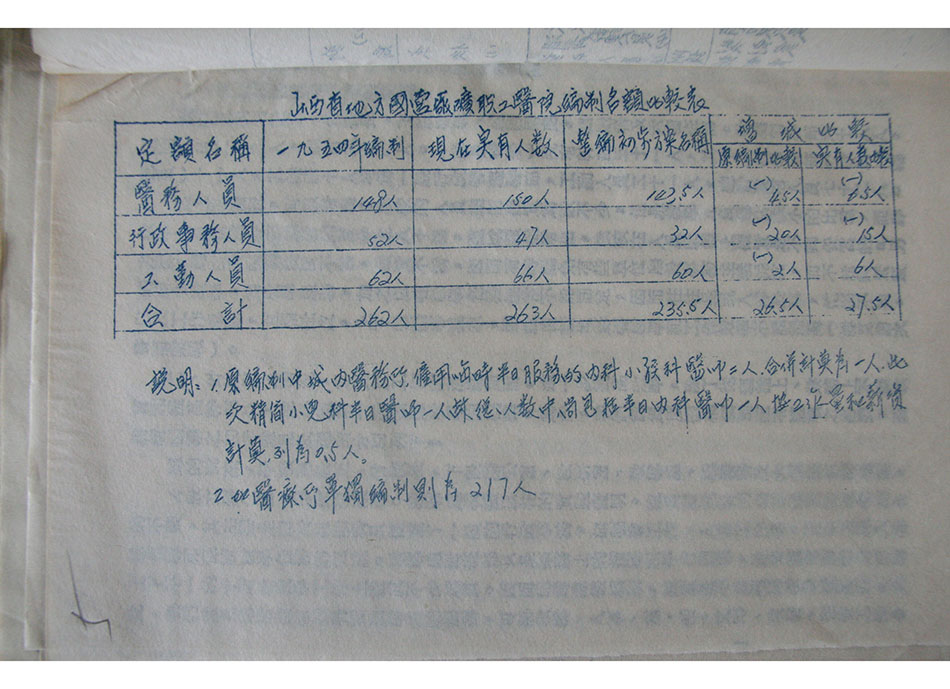 山西省地方國营廠礦职工醫院编制名額比較表
定額名稱 一九五四年编制 現在実有人数 整编初步方案名稱 增減比較
原编制比較 実有人数比較
醫務人員 148人 150人 143.5人 (-) 4.5人 (-) 6.5人
行政事務人員 52人 47人 32人 (-) 20人 (-) 15人
工勤人員 62人 66人 60人 (-) 2人 6人
合計 262人 263人 235.5人 26.5人 27.5人
説明：1.原编制中城内醫務所，僱用每時半日服務的内科小孩科醫师二人，合併計算為一人，此
次精简小兒科半日醫师一人，故總人数中尚包括半日内科醫师一人，按工作量和薪资
計算，列為0.5人。
2.如醫療所單獨编制則為217人